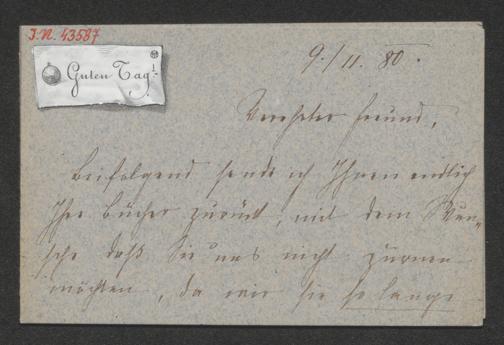 J.N. 43587
Guten Tag!
9./11. 80.
Verehrter Freund,
Beifolgend sende ich Ihnen endlich
Ihre Bücher zurück, mit dem Wun-
sche daß Sie uns nicht zürnen
möchten, da wir sie so lange